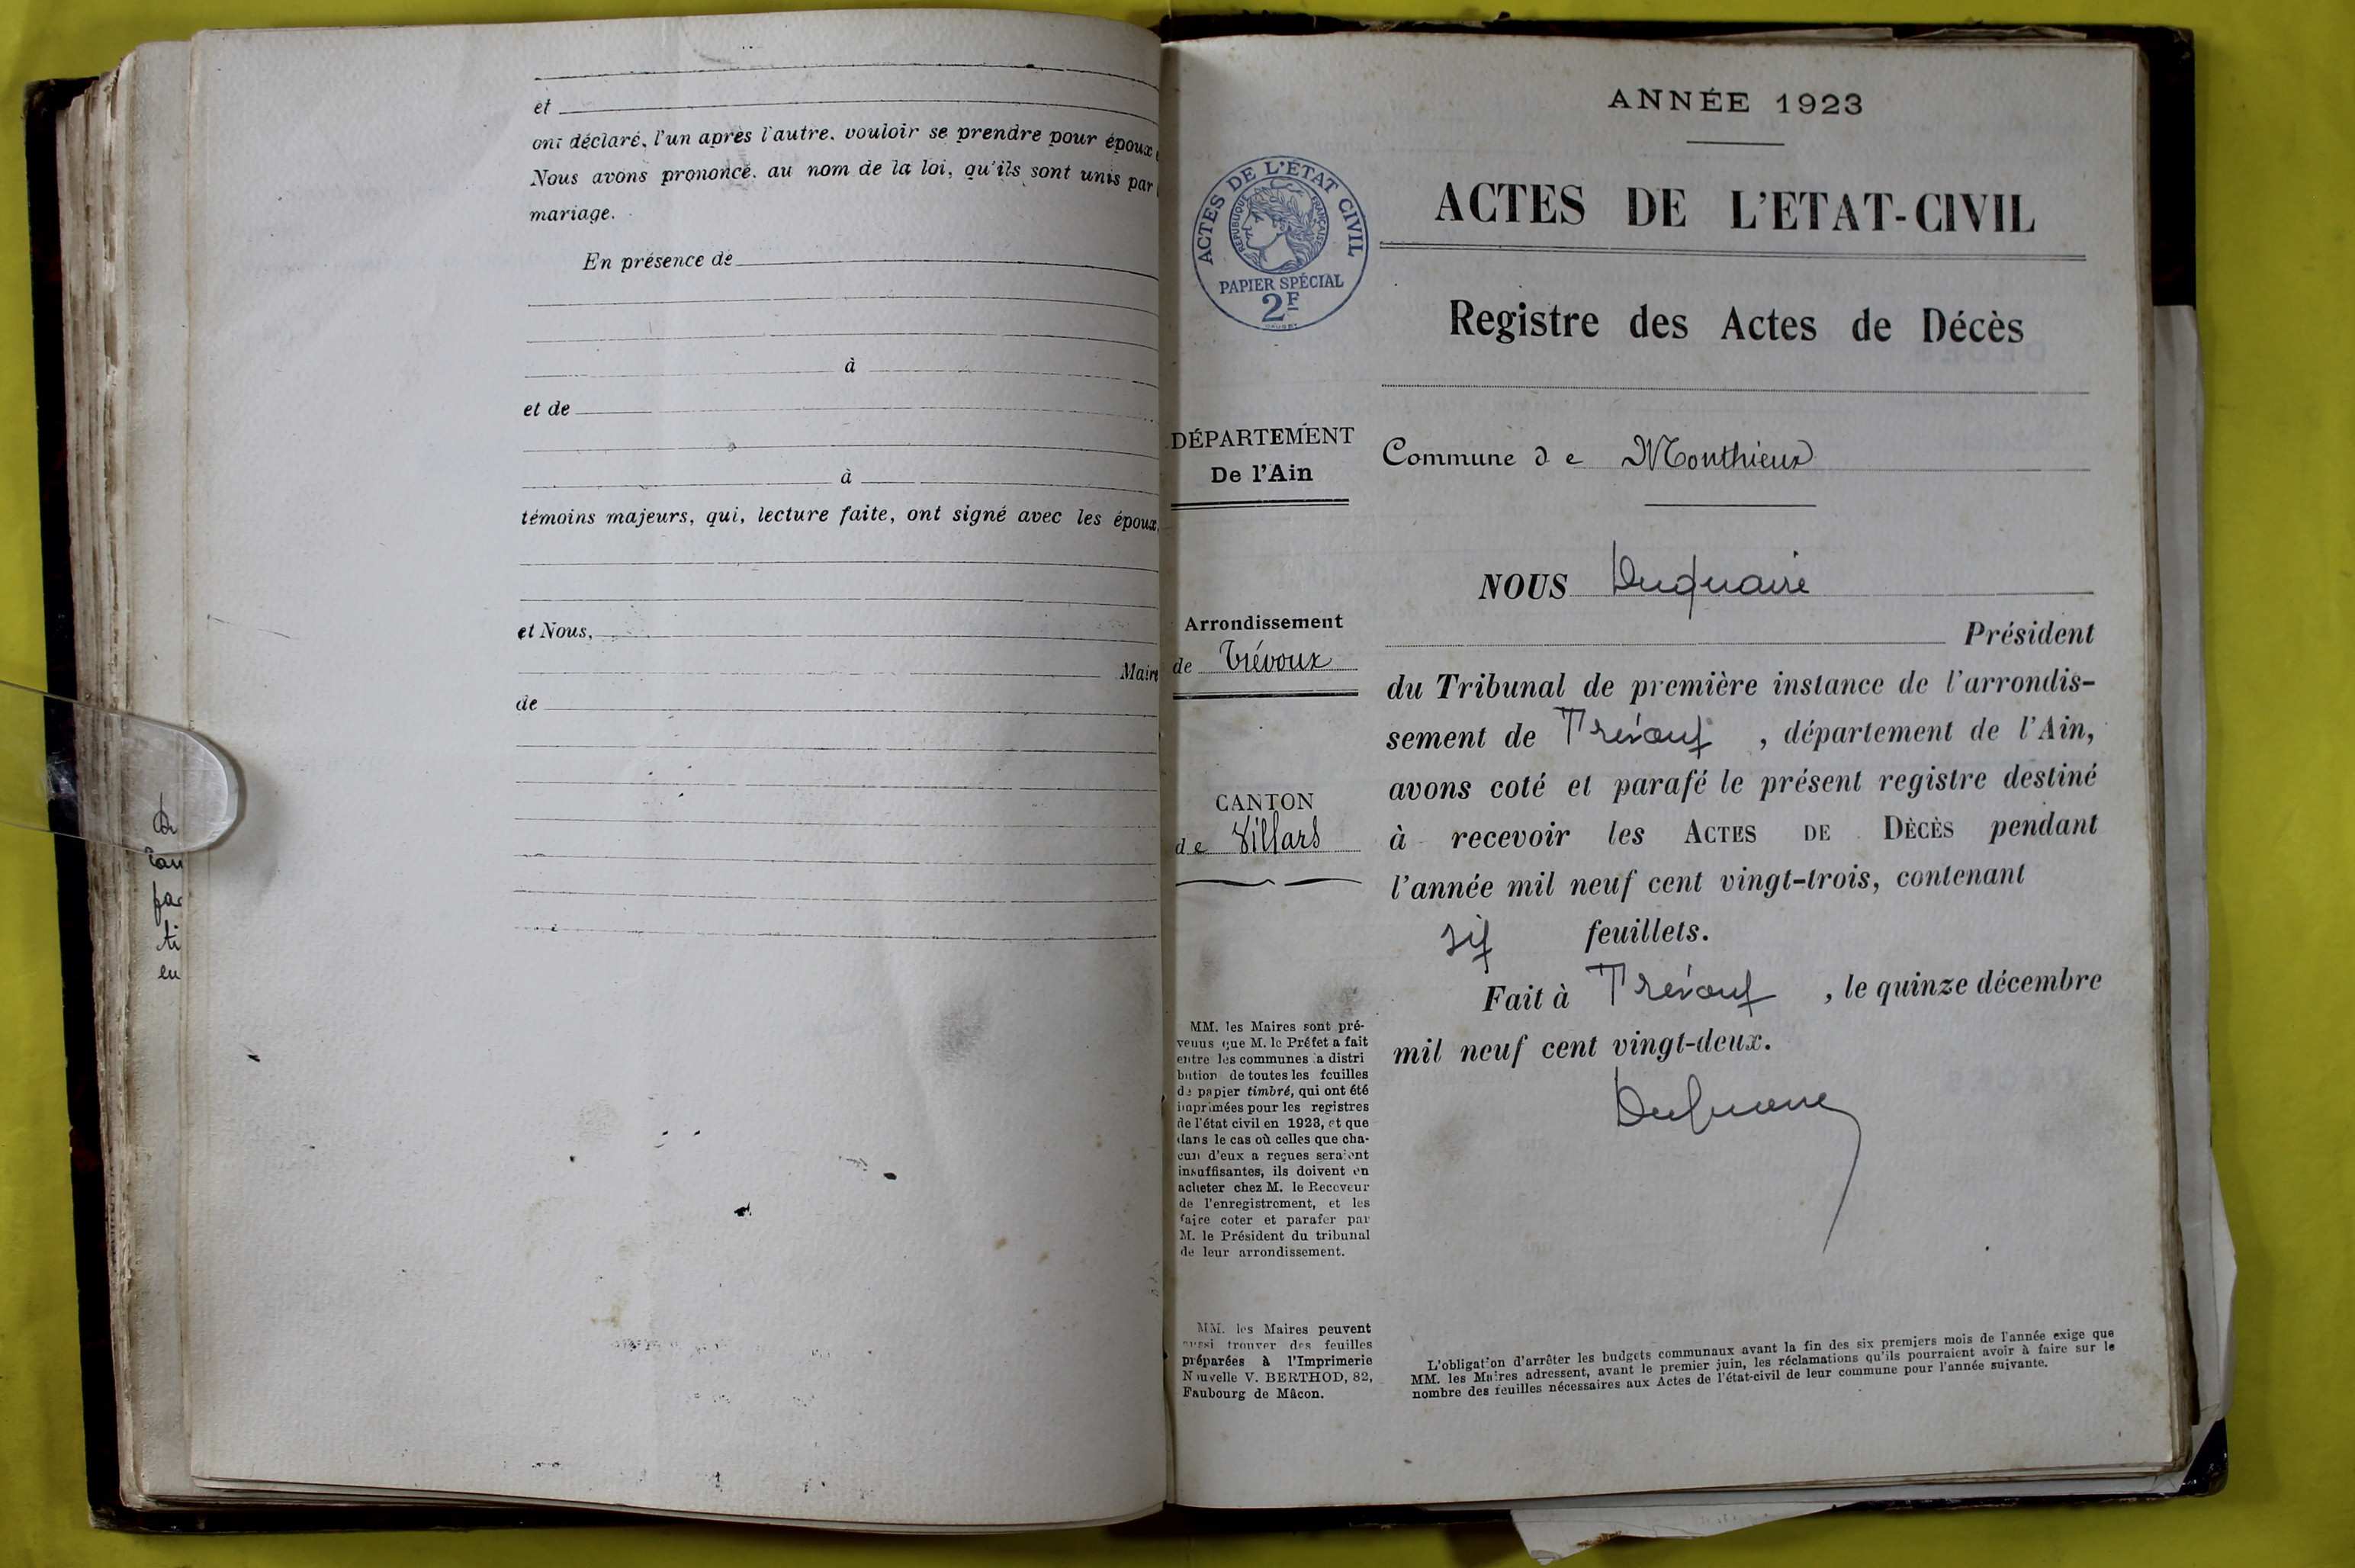 et
ont déclaré, l'un après l'autre, vouloir se prendre pour époux
Nous avons prononcé, au nom de la loi, qu'ils sont unis par
mariage.
En présence de
à
et de
à
témoins majeurs, qui, lecture faite, ont signé avec les époux
et Nous,
Maire
de
tau
ti
en
ANNÉE 1923
ACTES DE L'ÉTAT CIVIL
RÉPUBLIQUE FRANÇAISE
PAPIER SPÉCIAL
2F
ACTES DE L'ETAT-CIVIL
Registre des Actes de Décès
DÉPARTEMENT
De l'Ain
Commune de Monthieux
NOUS Duquaire
Arrondissement
de Trévoux
Président
du Tribunal de première instance de l'arrondis-
sement de Trévoux, département de l'Ain,
avons coté et parafé le présent registre destiné
à recevoir les ACTES DE DÈCÈS pendant
l'année mil neuf cent vingt-trois, contenant
six feuillets.
Fait à Trévoux, le quinze décembre
mil neuf cent vingt-deux.
Duquaire
CANTON
de Villars
MM. les Maires sont pré-
venus que M. le Préfet a fait
entre les communes la distri
bution de toutes les feuilles
de papier timbré, qui ont été
imprimées pour les registres
de l'état civil en 1923, et que
dans le cas où celles que cha-
cun d'eux a reçues seraient
insuffisantes, ils doivent en
acheter chez M. le Receveur
de l'enregistrement, et les
faire coter et parafer par
M. le Président du tribunal
de leur arrondissement.
MM. les Maires peuvent
aussi trouver des feuilles
préparées à l'Imprimerie
Nouvelle V. BERTHOD, 82,
Faubourg de Mâcon.
L'obligation d'arrêter les budgets communaux avant la fin des six premiers mois de l'année exige que
MM. les Maires adressent, avant le premier juin, les réclamations qu'ils pourraient avoir à faire sur le
nombre des feuilles nécessaires aux Actes de l'état-civil de leur commune pour l'année suivante.